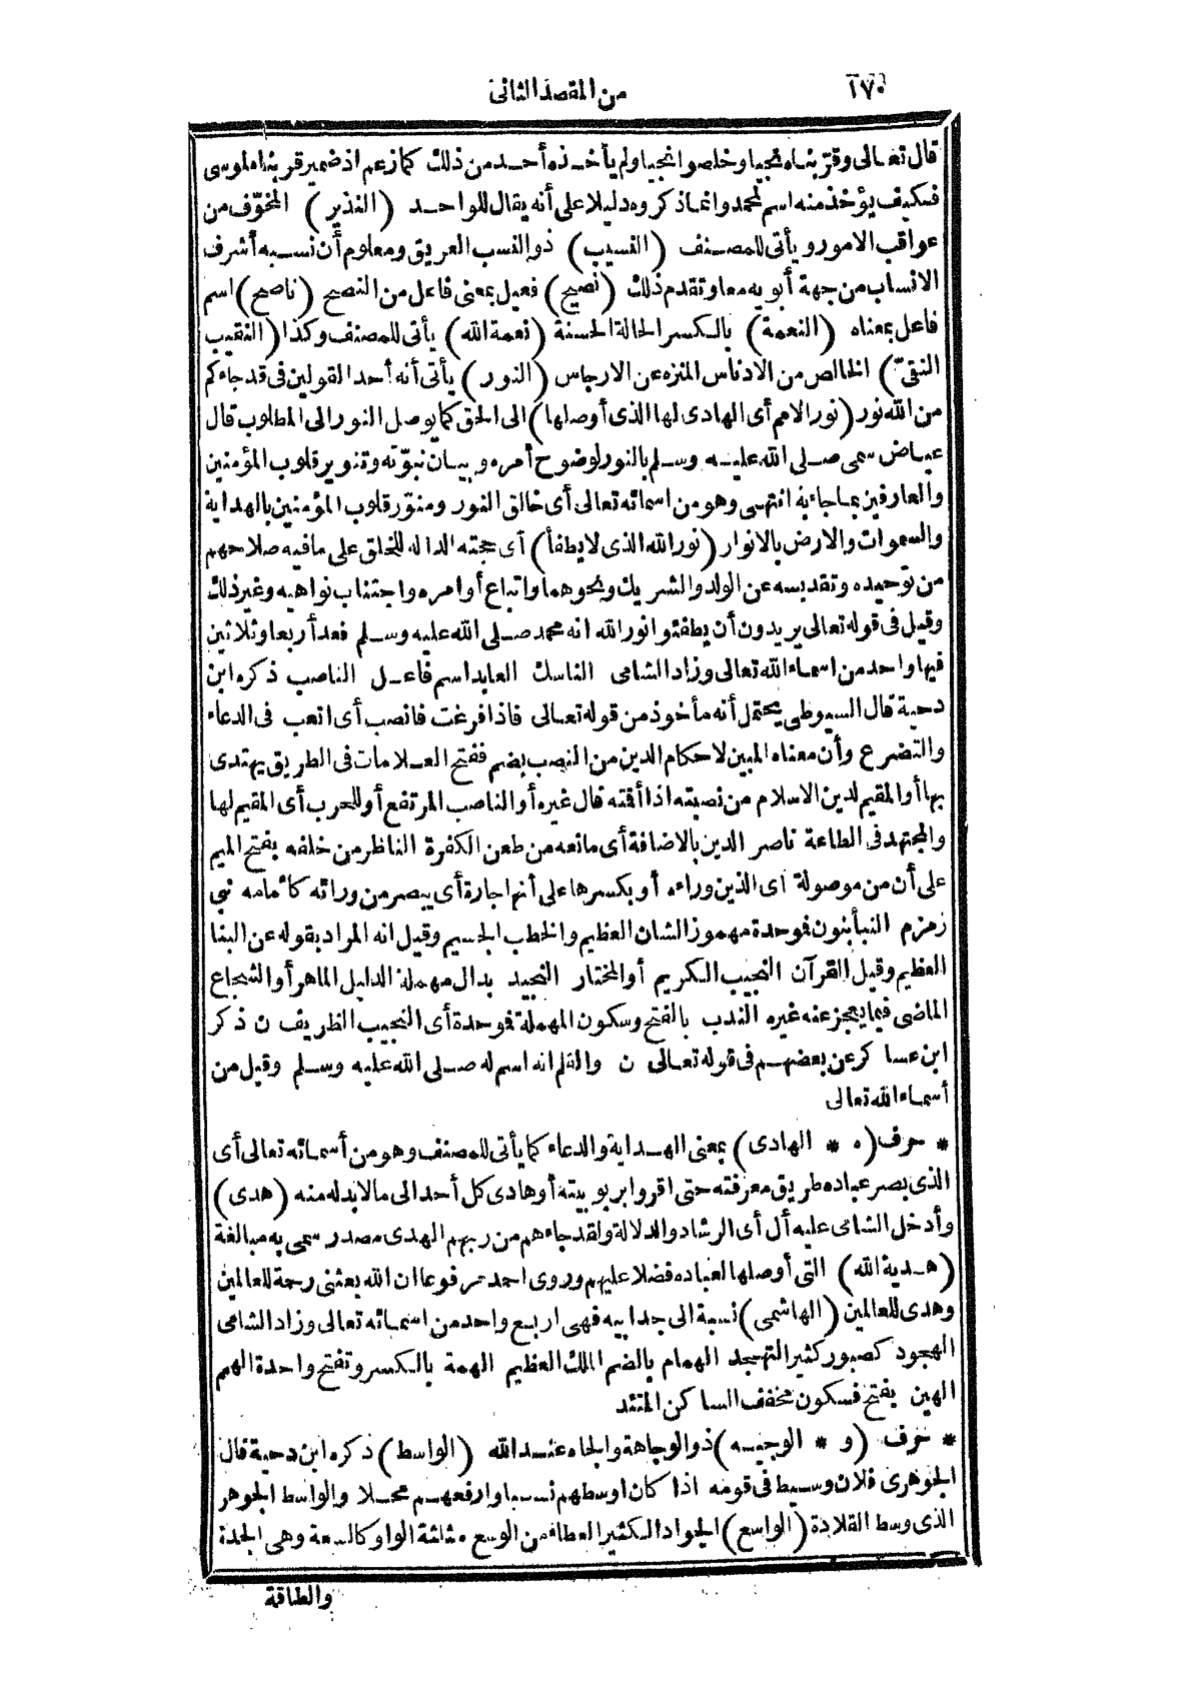 ١٧٠ من المقصد الثانى
قال تعالى وقرّبناه نجيا وخلصوا نجيا ولم يأخذه أحد من ذلك كما زعم اذ ضمير قربناه لموسى
فكيف يؤخذ منه اسم لمحمد وانما ذكروه دليلا على أنه يقال للواحد (النذير) المخوّف من
عواقب الامور ويأتى للمصنف (النسيب) ذو النسب العريق ومعلوم أن نسبه أشرف
الانساب من جهة أبويه معا وتقدم ذلك (نصيح) فعيل بمعنى فاعل من النصح (ناصح) اسم
فاعل بمعناه (النعمة) بالكسر الحالة الحسنة (نعمة الله) يأتى للمصنف وكذا (النقيب
النقىّ) الخالص من الادناس المنزه عن الارجاس (النور) يأتى أنه أحد القولين فى قد جاءكم
من الله نور (نور الامم أى الهادى لها الذى أوصلها) الى الحق كما يوصل النور الى المطلوب قال
عياض سمى صلى الله عليه وسلم بالنور لوضوح أمره وبيان نبوّته وتنوير قلوب المؤمنين
والعارفين بما جاء به انتهى وهو من اسمائه تعالى أى خالق النور ومنوّر قلوب المؤمنين بالهداية
والسموات والارض بالانوار (نور الله الذى لا يطفأ) أى حجته الدالة للخلق على ما فيه صلاحهم
من توحيده وتقديسه عن الولد والشريك ونحوهما واتباع أوامره واجتناب نواهيه وغير ذلك
وقيل فى قوله تعالى يريدون أن يطفئوا نور الله انه محمد صلى الله عليه وسلم فعد أربعا وثلاثين
فيها واحد من اسماء الله تعالى وزاد الشامى الناسك العابد اسم فاعل الناصب ذكره ابن
دحية قال السيوطى يحتمل أنه مأخوذ من قوله تعالى فاذا فرغت فانصب أى اتعب فى الدعاء
والتضرع وأن معناه المبين لاحكام الدين من النصب بضم ففتح العلامات فى الطريق يهتدى
بها أو المقيم لدين الاسلام من نصبته اذا أقته قال غيره أو الناصب المرتفع أو للحرب أى المقيم لها
والمجتهد فى الطاعة ناصر الدين بالاضافة أى مانعه من طعن الكفرة الناظر من خلفه بفتح الميم
على أن من موصولة أى الذين وراءه أو بكسرها على أنها جارة أى يبصر من ورائه كأمامه نبى
زمزم النبأ بنون فموحدة مهموز الشان العظيم والخطب الجسيم وقيل انه المراد بقوله عن النبا
العظيم وقيل القرآن النجيب الكريم أو المختار النجيد بدال مهملة الدليل الماهر أو الشجاع
الماضى فيما يعجز عنه غيره الندب بالفتح وسكون المهملة فموحدة أى النجيب الظريف ن ذكر
ابن عساكر عن بعضهم فى قوله تعالى ن والقلم انه اسم له صلى الله عليه وسلم وقيل من
أسماء الله تعالى
* حرف (ه * الهادى) بمعنى الهداية والدعاء كما يأتى للمصنف وهو من أسمائه تعالى أى
الذى بصر عباده طريق معرفته حتى اقروا بربوبيته أو هادى كل أحد الى ما لا بد له منه (هدى)
وأدخل الشامى عليه أل أى الرشاد والدلالة ولقد جاءهم من ربهم الهدى مصدر سمى به مبالغة
(هدية الله) التى أوصلها لعباده فضلا عليهم وروى احمد مرفوعا ان الله بعثنى رحمة للعالمين
وهدى للعالمين (الهاشمى) نسبة الى جد ابيه فهى اربع واحد من اسمائه تعالى وزاد الشامى
الهجود كصبور كثير التهجد الهمام بالضم الملك العظيم الهمة بالكسر وتفتح واحدة الهمم
الهين بفتح فسكون مخفف الساكن المتئد
* حرف (و * الوجيه) ذو الوجاهة والجاه عند الله (الواسط) ذكره ابن دحية قال
الجوهرى فلان وسيط فى قومه اذا كان اوسطهم نسبا وارفعهم محلا والواسط الجوهر
الذى وسط القلادة (الواسع) الجواد الكثير العطاء من الوسع مثلثة الواو كالسعة وهى الجدة
والطاقة